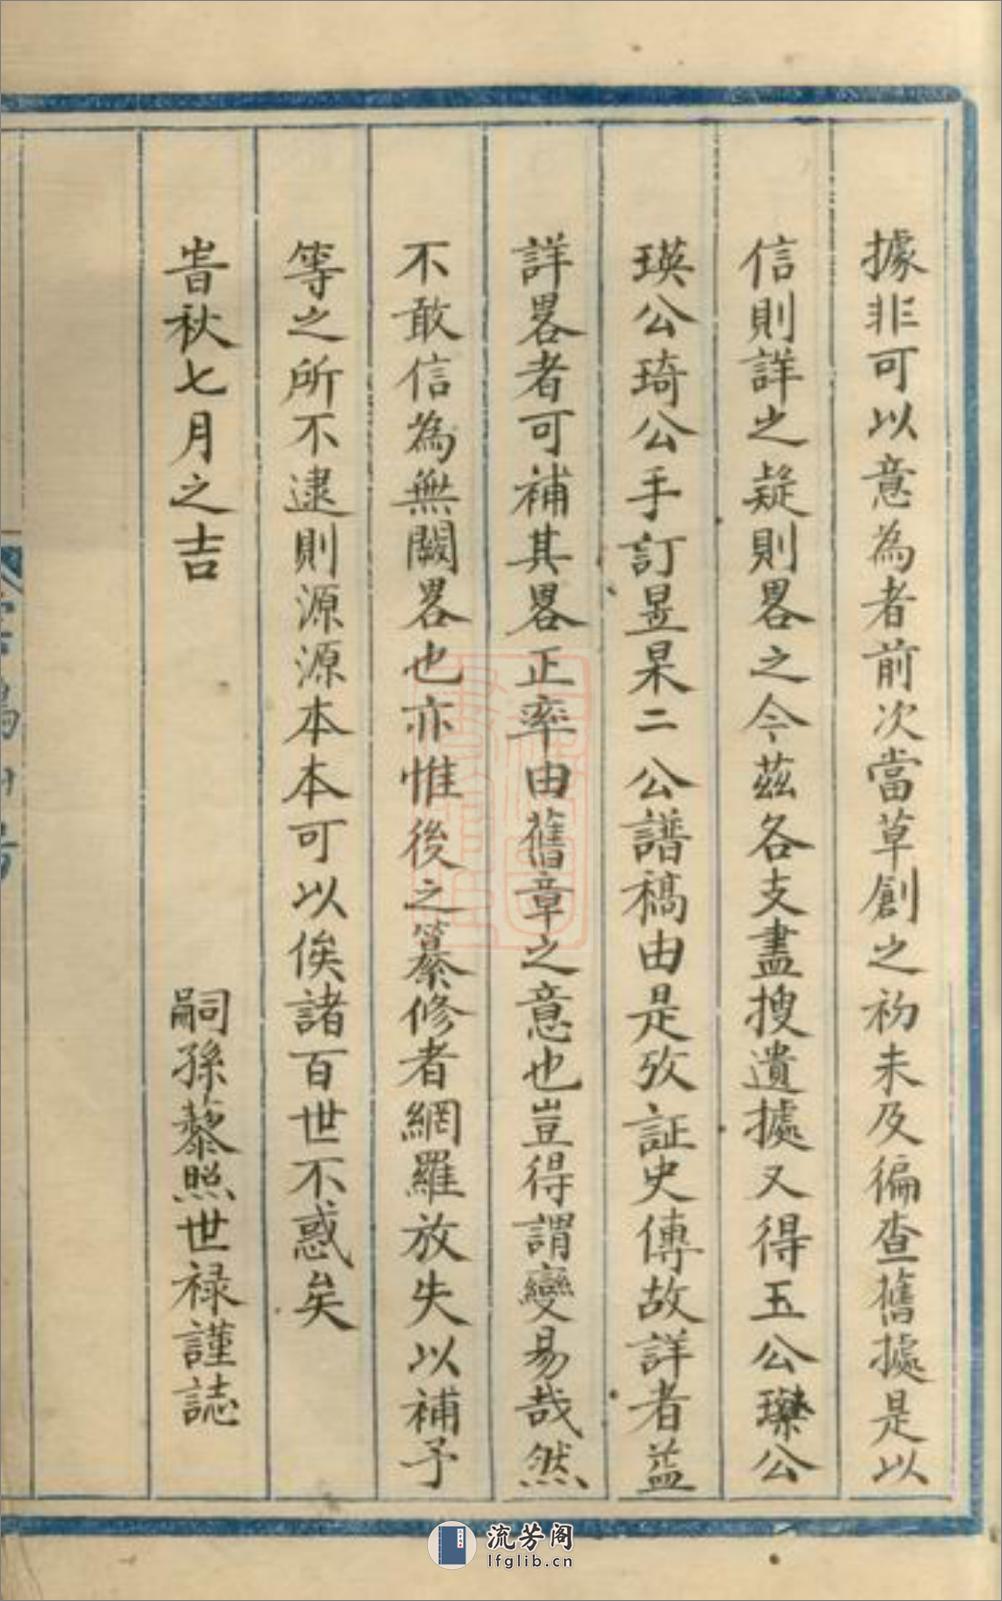 據非可以意為者前次當草創之初未及徧查舊據是以
信則詳之疑則畧之今茲各支盡搜遺據又得五公璨公
瑛公琦公手訂昱杲二公譜稿由是攷証史傳故詳者益
詳畧者可補其畧正率由舊章之意也豈得謂變易哉然
不敢信為無闕畧也亦惟後之纂修者網羅放失以補予
等之所不逮則源源本本可以俟諸百世不惑矣
旹秋七月之吉
嗣孫藜照世禄謹誌
流芳阁
lfglib.cn